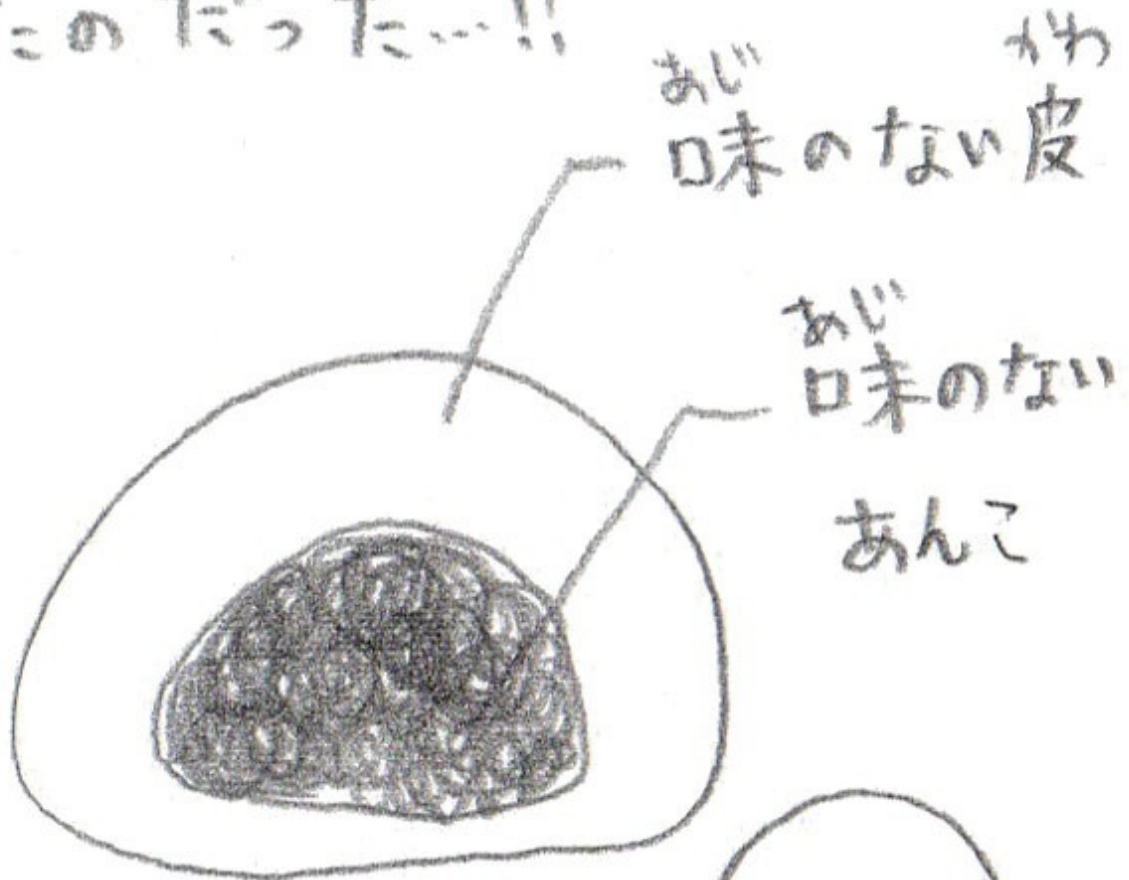 たのだった…!!
あじ がわ
味のない皮
あじ
味のない
あんこ